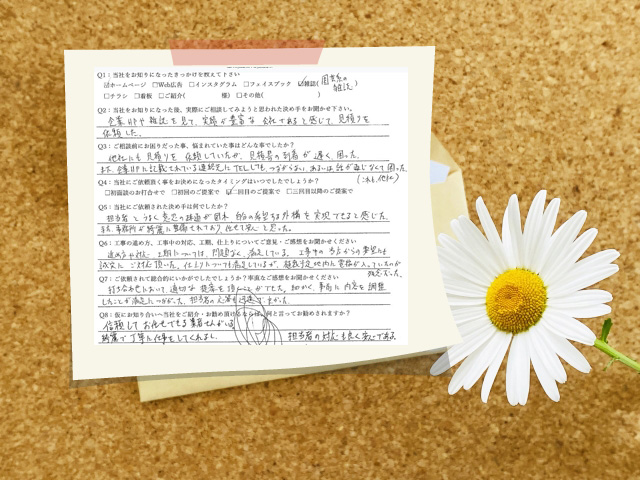 Q1：当社をお知りになったきっかけを教えて下さい
☑ホームページ □Web広告 □インスタグラム □フェイスブック ☑雑誌( 園芸系の
雑誌 )
□チラシ □看板 □ご紹介( 様) □その他( )
Q2：当社をお知りになった後、実際にご相談してみようと思われた決め手をお聞かせ下さい。
企業HPや雑誌を見て、実績が豊富な会社であると感じて、見積りを
依頼した。
Q3：ご相談前にお困りだった事、悩まれていた事はどんな事でしたか？
他社にも見積りを依頼していたが、見積書の到着が遅く、困った。
また、企業HPに記載されている連絡先にTELしても、つながらない、あるいは話が通じなくて困った。
(これも他社)
Q4：当社にご依頼頂く事をお決めになったタイミングはいつでしたでしょうか？
□初面談のお打合せで □初回のご提案で ☑二回目のご提案で □三回目以降のご提案で
Q5：当社にご依頼された決め手は何でしたか？
担当者とうまく意思の疎通が図れ、自分の希望する外構を実現できると感じた。
また、事務所が綺麗に整備されており、任せて安心と思った。
Q6：工事の進め方、工事中の対応、工期、仕上りについてご意見・ご感想をお聞かせください
進め方や対応、工期については、問題なく、満足している。工事中の当方からの要望にも
誠実にご対応頂いた。仕上りについても満足しているが、植栽予定地内に
残念だった。
Q7：ご依頼されて総合的にいかがでしたでしょうか？率直なご感想をお聞かせください
打ち合わせにおいて、適切な提案を頂くことができた。細かく、事前に内容を調整
したことが満足につながった。担当者の応答も迅速で良かった。
Q8：仮にお知り合いへ当社をご紹介・お勧め頂けるならば、何と言ってお勧めされますか？
信頼しておまかせできる業者さんがいる
綺麗で丁寧に仕事をしてくれるし、 担当者の対応も良く安心である